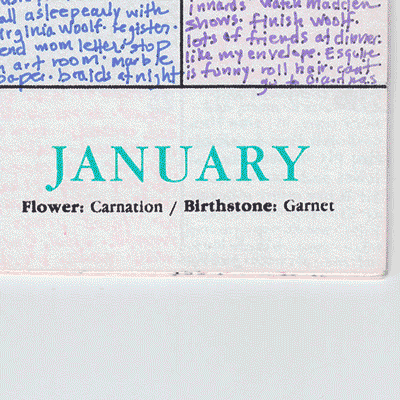 all asleep early with
virginia woolf. register.
end mom letter. stop
art room. marble
paper. braids at night
innards watch madden
shows. finish woolf.
lots of friends at dinner.
like my envelope. Esquire
is funny. roll hair. can't
go to
JANUARY
Flower: Carnation / Birthstone: Garnet